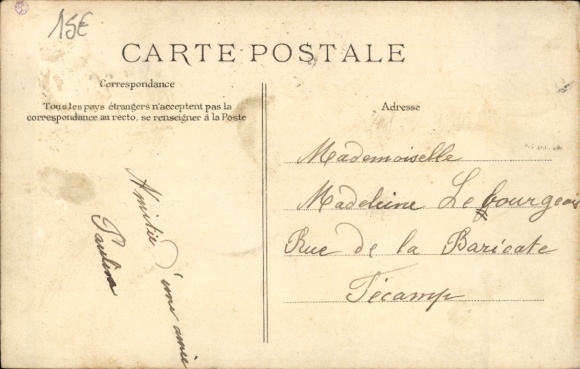 15€
CARTE POSTALE
Correspondance
Tous les pays étrangers n'acceptent pas la
correspondance au recto, se renseigner à la Poste
Adresse
Amitié d'une amie
Pauline
Mademoiselle
Madeleine Le Bourgeois
Rue de la Baricate
Fécamp